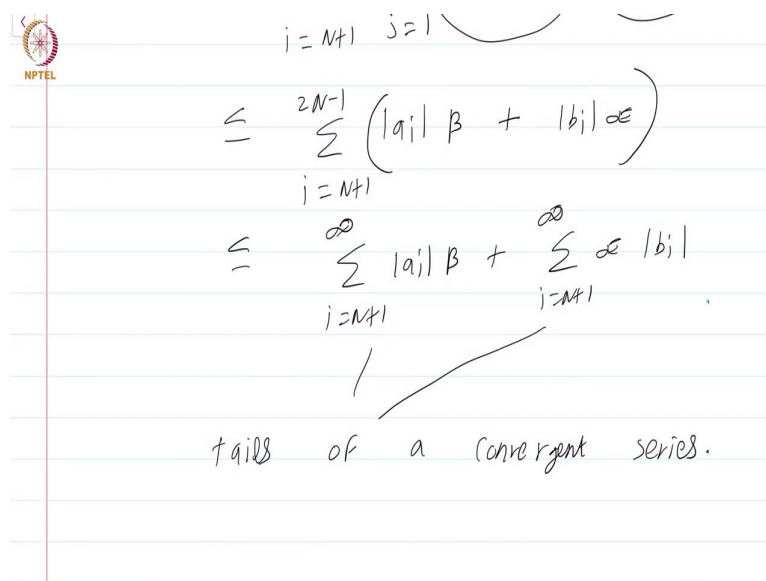 NPTEL
i = N+1 j = 1
≤ 2N-1 ∑ i = N+1 (|ai| β + |bi| α)
≤ ∞ ∑ i = N+1 |ai| β + ∞ ∑ i = N+1 α |bi|
tails of a convergent series.